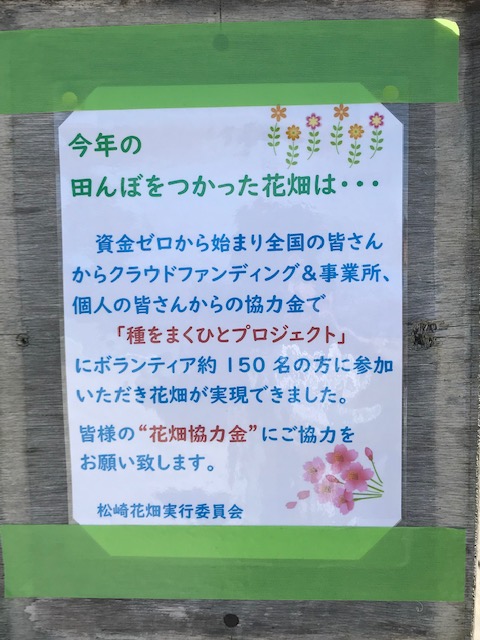 今年の
田んぼをつかった花畑は・・・
資金ゼロから始まり全国の皆さん
からクラウドファンディング＆事業所、
個人の皆さんからの協力金で
「種をまくひとプロジェクト」
にボランティア約 150 名の方に参加
いただき花畑が実現できました。
皆様の“花畑協力金”にご協力を
お願い致します。
松崎花畑実行委員会